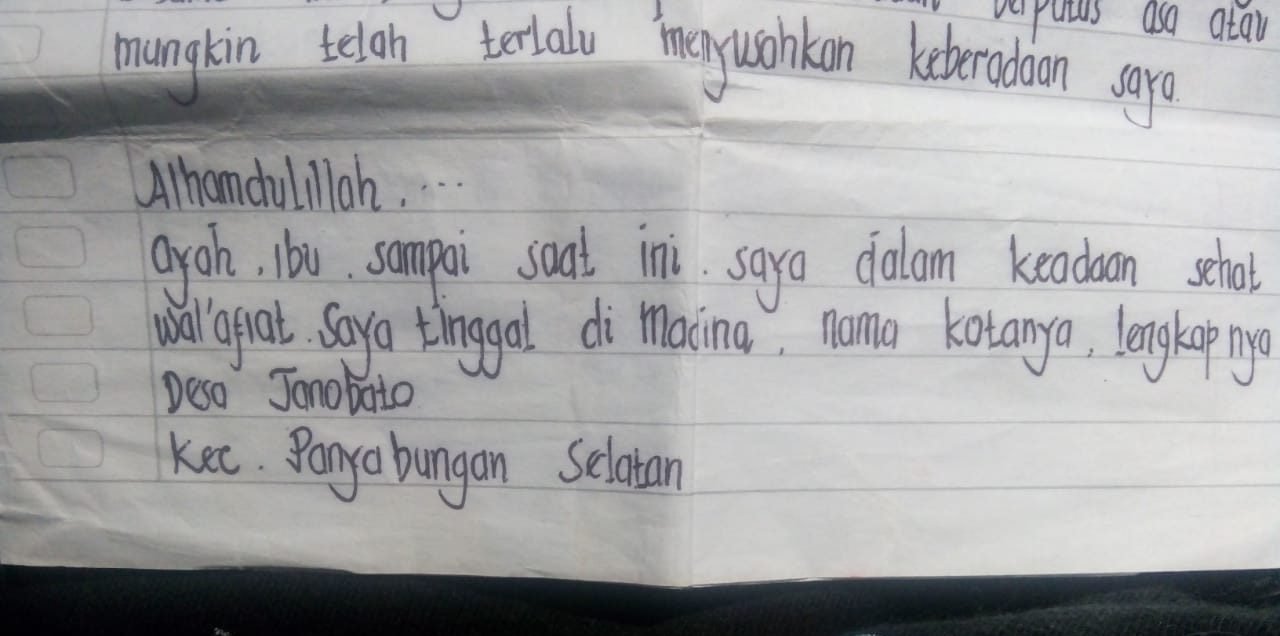 berputus asa atau
mungkin telah terlalu menyusahkan keberadaan saya.
Alhamdulillah. ...
ayah, ibu, sampai saat ini. saya dalam keadaan sehat
wal'afiat. Saya tinggal di Madina, nama kotanya, lengkapnya
Desa Tanobato
Kec. Panyabungan Selatan